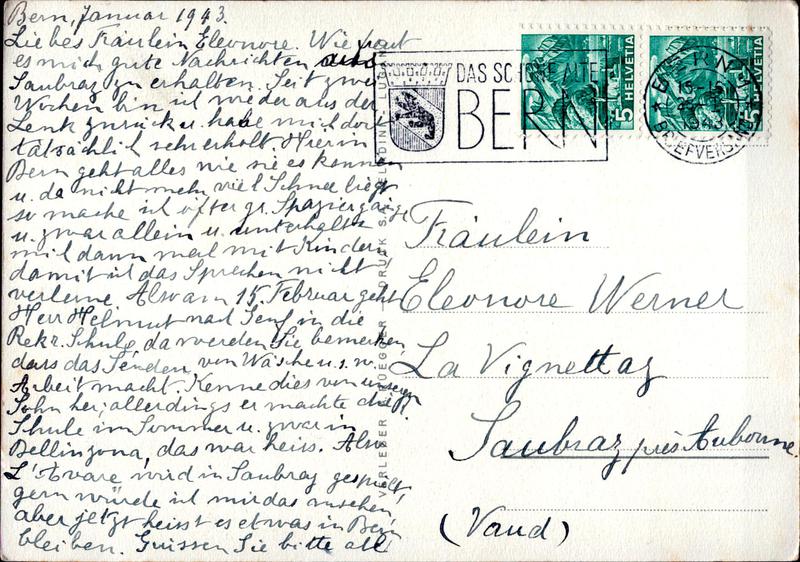 Bern, Januar 1943.
Liebes Fräulein Eleonore. Wie freut
es mich gute Nachrichten aus
Saubraz zu erhalten. Seit zwei
Wochen bin ich wieder aus der
Lenk zurück u. habe mich dort
tatsächlich sehr erholt. Hier in
Bern geht alles wie sie es kennen
u. da nicht mehr viel Schnee liegt
so mache ich öfter gr. Spaziergänge
u. zwar allein u. unterhalte
mich dann mal mit Kindern
damit ich das Sprechen nicht
verlerne. Also am 15. Februar geht
Herr Helmut nach Genf in die
Rekr. Schule, da werden Sie bemerken,
dass das Senden von Wäsche u.s.w.
Arbeit macht. Kenne dies von unserem
Sohn her; allerdings er machte die
Schule im Sommer u. zwar in
Bellinzona, das war heiss. Also
L'Avare wird in Saubraz gespielt,
gern würde ich mir das ansehen,
aber jetzt heisst es etwas in Bern
bleiben. Grüssen Sie bitte all
DAS SCHÖNE ALTE
BERN
HELVETIA
5
HELVETIA
5
BERN
1943
BRIEFVERSAND
Fräulein
Eleonore Werner
La Vignettaz
Saubraz près Aubonne.
(Vaud)